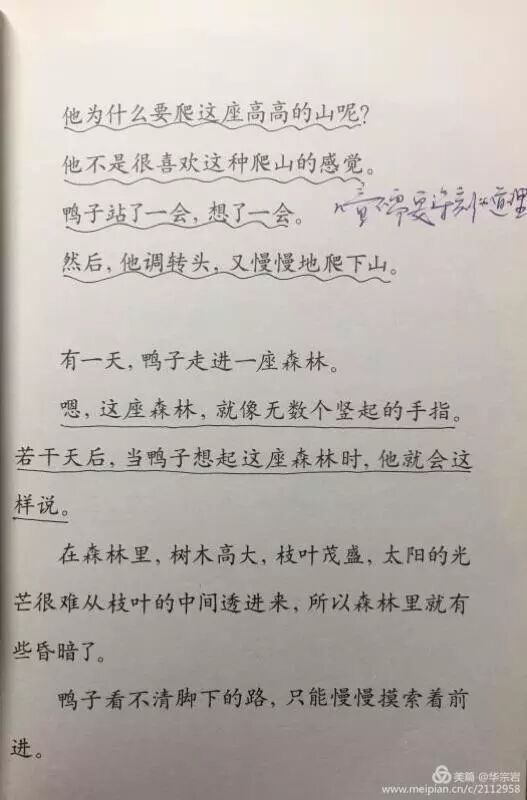 他为什么要爬这座高高的山呢？
他不是很喜欢这种爬山的感觉。
鸭子站了一会，想了一会。
不需要 道理
然后，他调转头，又慢慢地爬下山。
有一天，鸭子走进一座森林。
嗯，这座森林，就像无数个竖起的手指。
若干天后，当鸭子想起这座森林时，他就会这
样说。
在森林里，树木高大，枝叶茂盛，太阳的光
芒很难从枝叶的中间透进来，所以森林里就有
些昏暗了。
鸭子看不清脚下的路，只能慢慢摸索着前
进。
美篇 @华宗岩
www.meipian.cn/c/2112958